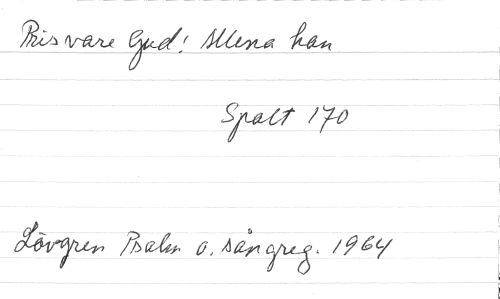 Pris vare Gud! Allena han
Spalt 170
Lövgren Psalm o. sångreg. 1964